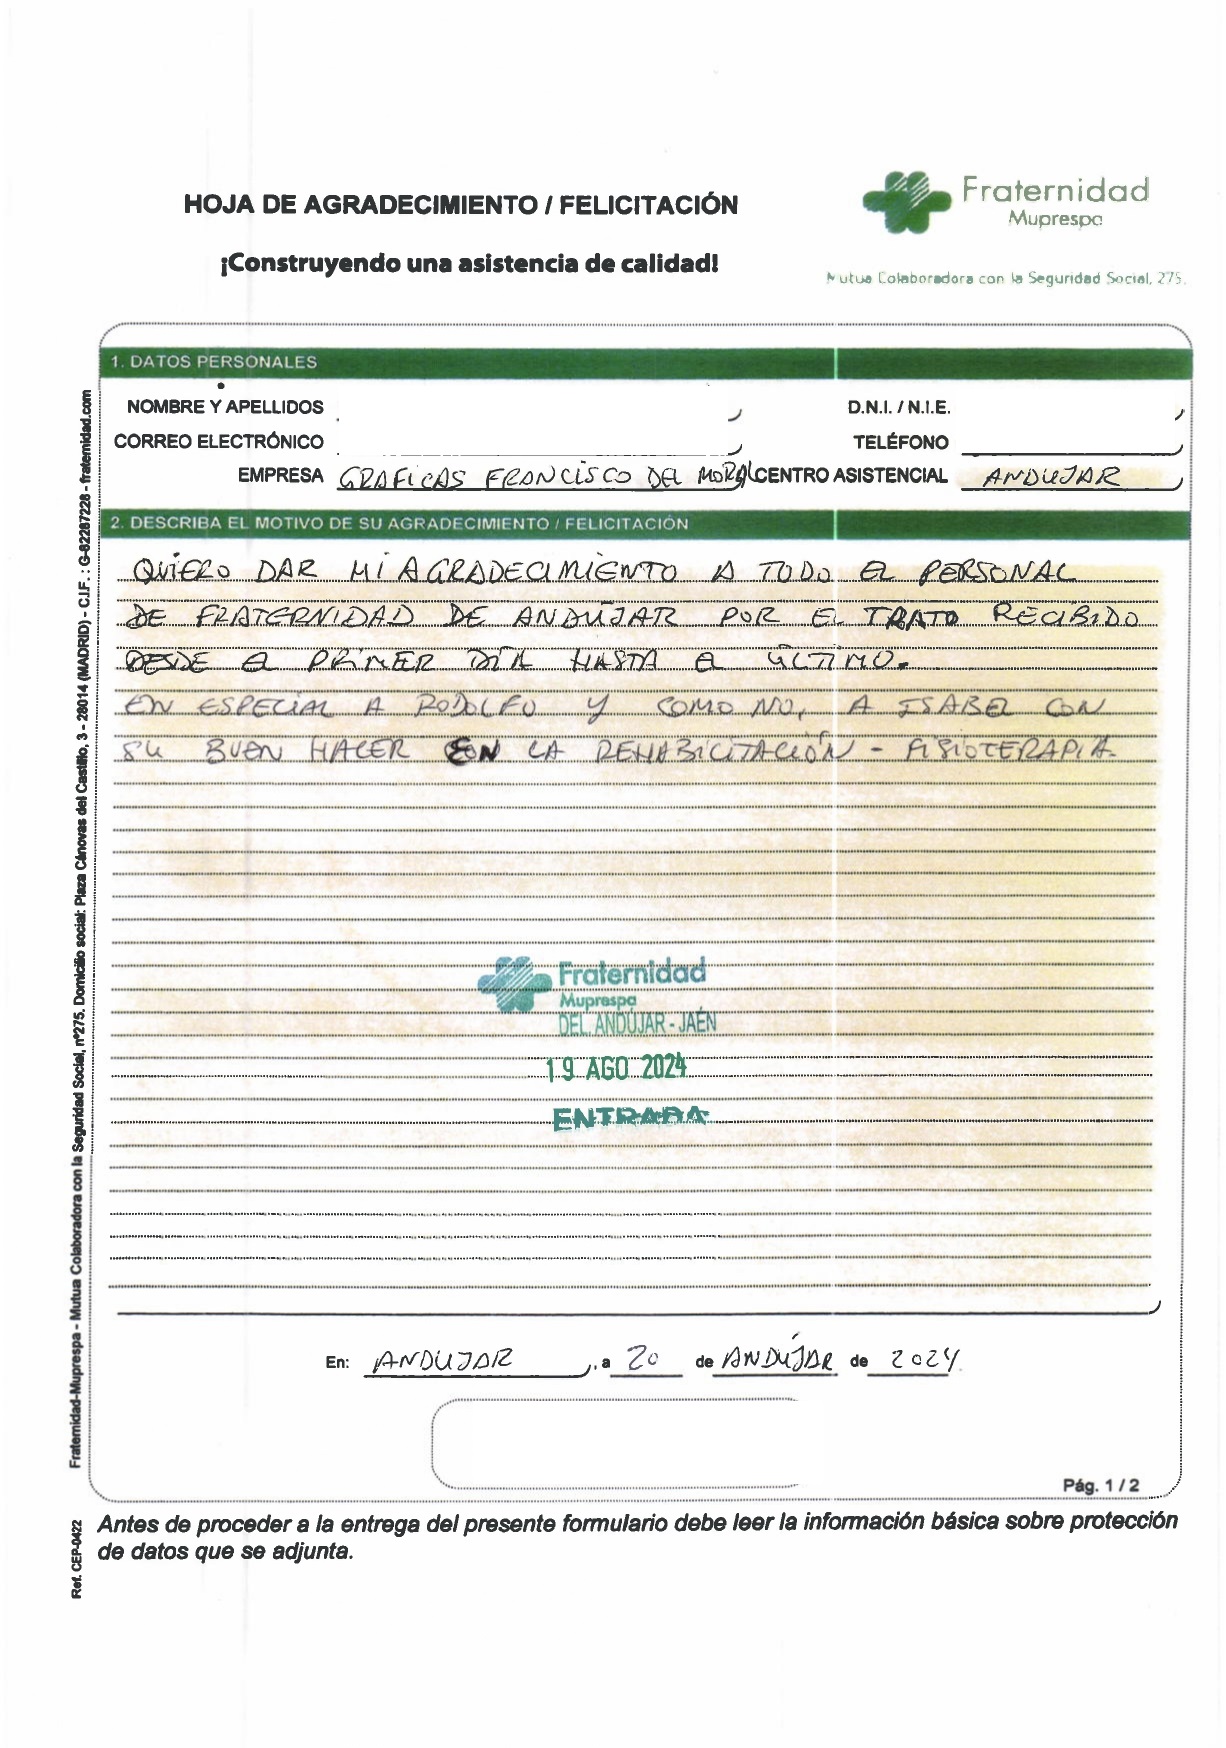 HOJA DE AGRADECIMIENTO / FELICITACIÓN
¡Construyendo una asistencia de calidad!
Fraternidad
Muprespa
Mutua Colaboradora con la Seguridad Social, 275.
1. DATOS PERSONALES
NOMBRE Y APELLIDOS
D.N.I. / N.I.E.
CORREO ELECTRÓNICO
TELÉFONO
EMPRESA GRAFICAS FRANCISCO DEL MORAL CENTRO ASISTENCIAL ANDUJAR
2. DESCRIBA EL MOTIVO DE SU AGRADECIMIENTO / FELICITACIÓN
QUIERO DAR MI AGRADECIMIENTO A TODO EL PERSONAL
DE FRATERNIDAD DE ANDÚJAR POR EL TRATO RECIBIDO
DESDE EL PRIMER DÍA HASTA EL ÚLTIMO.
EN ESPECIAL A RODOLFO Y COMO NO, A ISABEL CON
SU BUEN HACER EN LA REHABILITACIÓN - FISIOTERAPIA.
Fraternidad
Muprespa
DEL. ANDÚJAR - JAÉN
19 AGO 2024
ENTRADA
En: ANDUJAR, a 20 de ANDÚJAR de 2024
Pág. 1 / 2
Antes de proceder a la entrega del presente formulario debe leer la información básica sobre protección
de datos que se adjunta.
Fraternidad-Muprespa - Mutua Colaboradora con la Seguridad Social, nº275. Domicilio social: Plaza Cánovas del Castillo, 3 - 28014 (MADRID) - C.I.F. : G-82287228 - fraternidad.com
Ref. CEP-0422